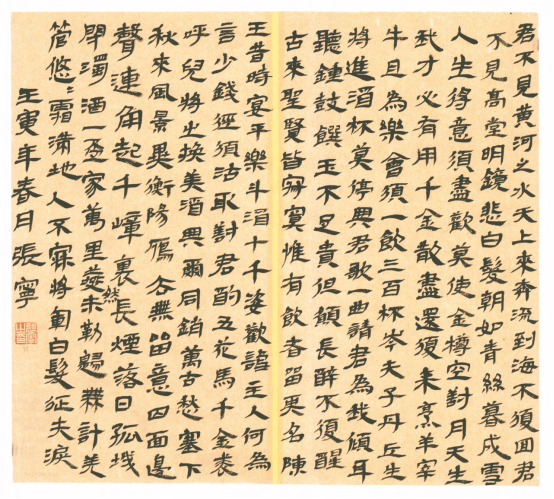 君不見黄河之水天上來奔流到海不須回君
不見高堂明鏡悲白髮朝如青絲暮成雪
人生得意須盡歡莫使金樽空對月天生
我才必有用千金散盡還須来烹羊宰
牛且為樂會須一飲三百杯岑夫子丹丘生
將進酒杯莫停與君歌一曲請君為我傾耳
聽鍾鼓饌玉不足貴但願長醉不復醒
古来聖賢皆寂寞惟有飲者留其名陳
王昔時宴平樂斗酒十千姿歡謔主人何為
言少錢徑須沽取對君酌五花馬千金裘
呼兒將出換美酒與爾同銷萬古愁塞下
秋来風景異衡陽鴈去無留意四面邊
聲連角起千嶂裏長煙落日孤城
閉濁酒一盃家萬里燕然未勒歸無計羌
管悠〻霜滿地人不寐將軍白髮征夫淚
壬寅年春月張寧